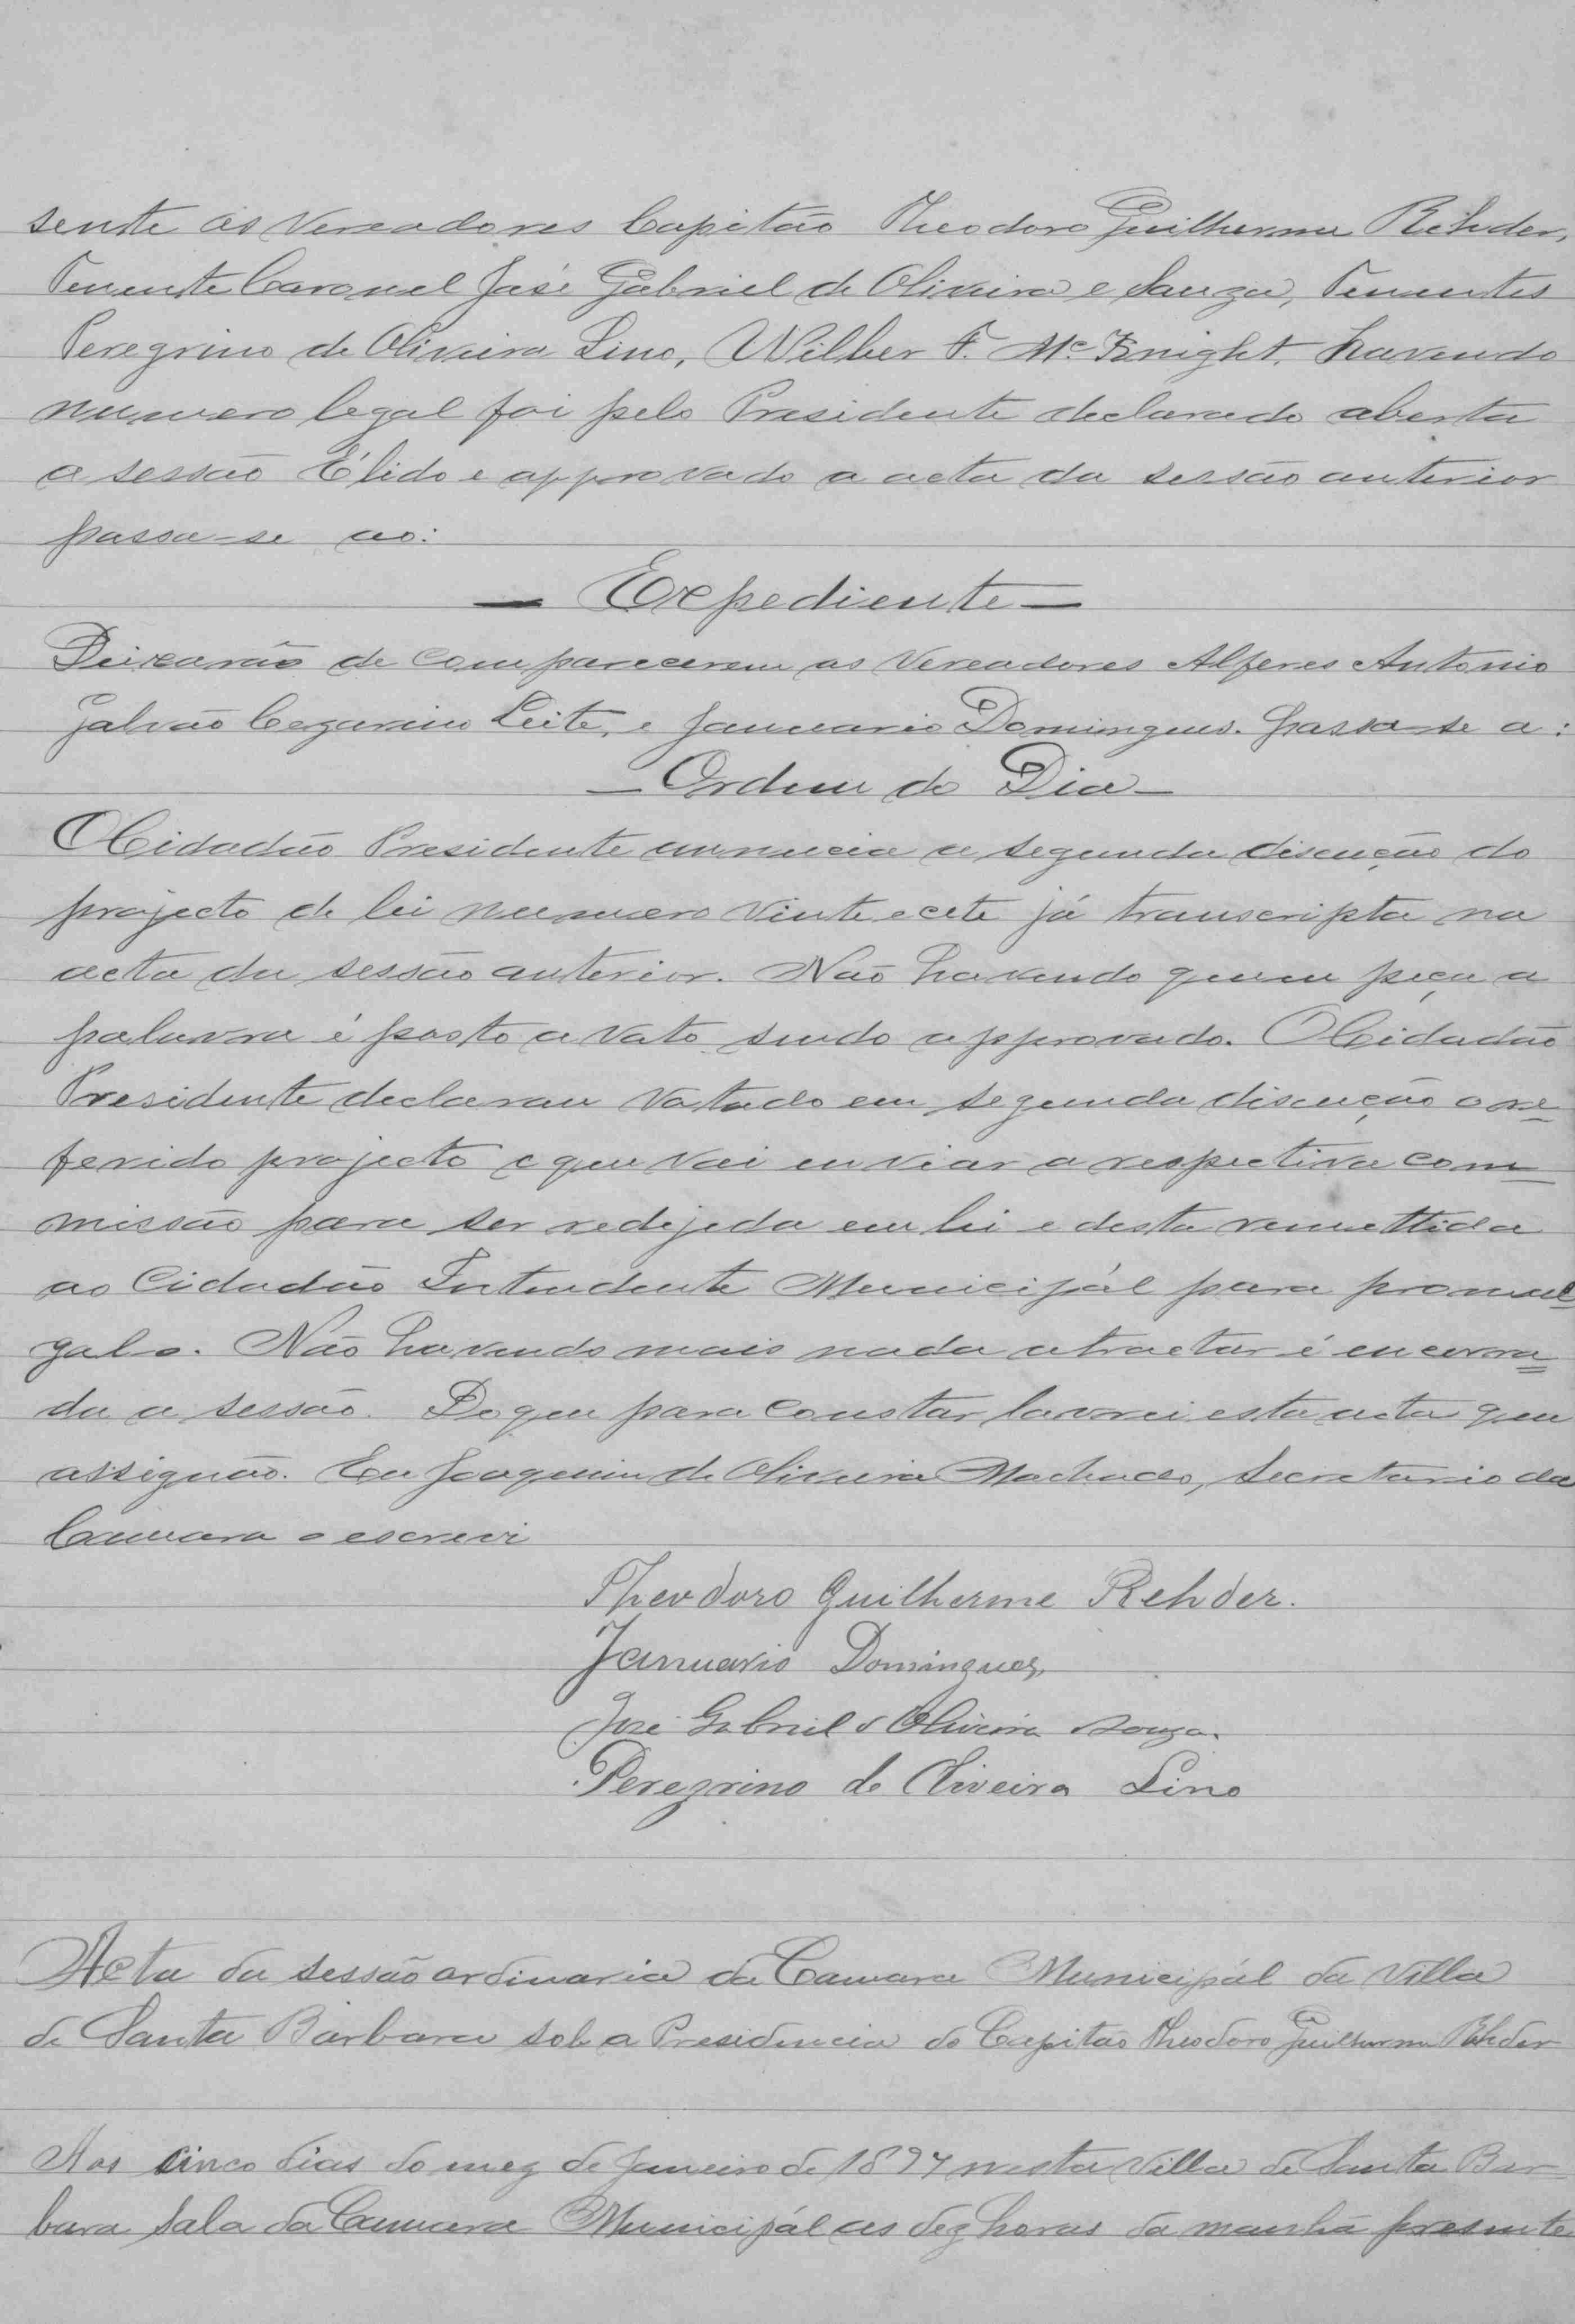 sente os Vereadores Capitão Theodoro Guilherme Rehder,
Tenente Coronel José Gabriel de Oliveira e Souza, Tenentes
Peregrino de Oliveira Lino, Wilber F. Mc Knight. havendo
numero legal foi pelo Presidente declarado aberta
a sessão É lido e approvado a acta da sessão anterior
passa-se ao:
— Expediente —
Deixarão de comparecerem os Vereadores Alferes Antonio
Galvão Cezarino Leite, e Januario Domingues. passa-se a:
— Ordem do Dia —
O Cidadão Presidente annuncia a segunda discução do
projecto de lei numero vinte e cete já transcripta na
acta da sessão anterior. Não havendo quem peça a
palavra é posto a voto sendo approvado. O Cidadão
Presidente declarou votado em segunda discução o re=
ferido projecto e que vai enviar a respectiva com=
missão para ser redijeda em lei e desta remettida
ao Cidadão Intendente Municipál para promul=
galo. Não havendo mais nada atractar é encerra=
da a sessão. Do que para constar lavrei esta acta que
assignão. Eu Joaquim de Oliveira Machado, Secretario da
Camara o escrevi
Theodoro Guilherme Rehder.
Januario Domingues
José Gabriel d Oliveira Souza.
Peregrino de Oliveira Lino
Acta da sessão ordinaria da Camara Municipál da Villa
de Santa Barbara sob a Presidencia do Capitão Theodoro Guilherme Rehder
Aos cinco dias do mez de Janeiro de 1897 nesta Villa de Santa Bar
bara Sala da Camara Municipál as dez horas da manhã presente